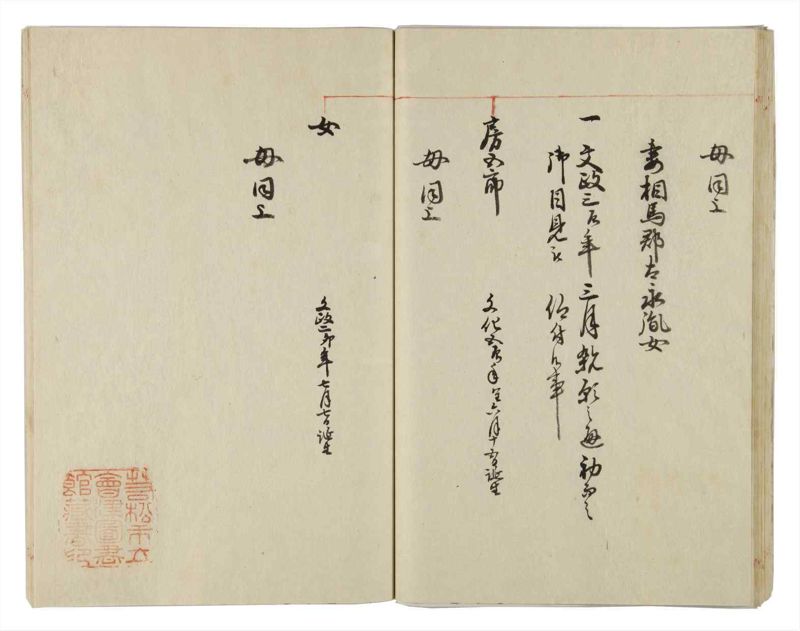 母同上
妻相馬郡 永胤女
一 文政三辰年三月親願之通初而之
御目見被 仰付候事
房五郎 文化五辰年閏六月十 日誕生
母同上
女 文政二卯年七月七日誕生
母同上
若松市立
會津圖書
館藏書印